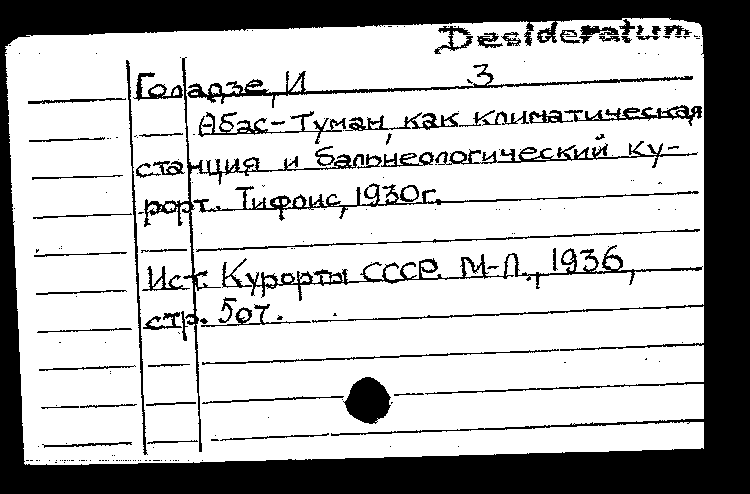 Desideratum
Голадзе, И 3
Абас-Туман, как климатическая
станция и бальнеологический ку-
рорт. Тифлис, 1930г.
Ист. Курорты СССР. М-Л., 1936,
стр. 507.